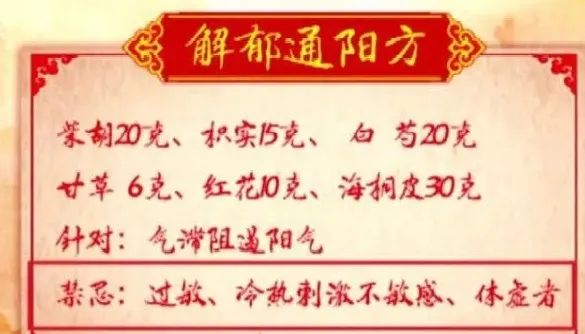 解郁通阳方
柴胡20克、枳实15克、 白 芍20克
甘草 6克、红花10克、海桐皮30克
针对：气滞阻遏阳气
禁忌：过敏、冷热刺激不敏感、体虚者